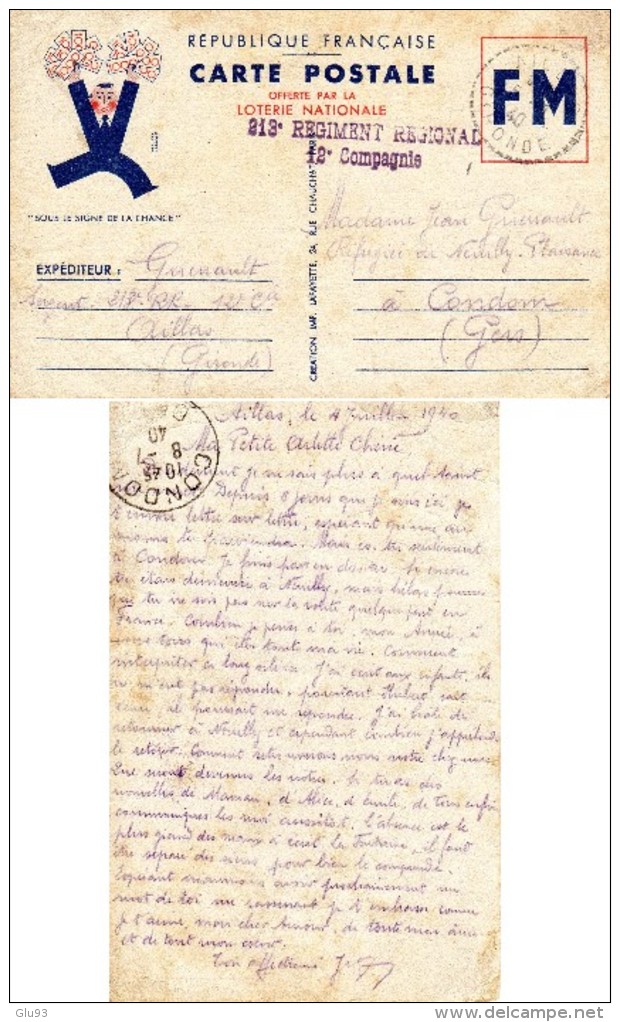 RÉPUBLIQUE FRANÇAISE
CARTE POSTALE
OFFERTE PAR LA
LOTERIE NATIONALE
FM
213e REGIMENT REGIONAL
12e Compagnie
"SOUS LE SIGNE DE LA CHANCE"
EXPÉDITEUR : Guenault
Sergent - 213e RR - 12e Cie
Aillas
(Gironde)
CREATION IMP. LAFAYETTE, 24 RUE CHAUCHAT PARIS
Madame Jean Guenault
Réfugiée de Neuilly Plaisance
à Condom
(Gers)
Aillas, le 4 Juillet 1940
CONDOM
10-45
8
7
40
Ma Petite Arlette Chérie
je ne sais plus à quel saint
Depuis 8 jours que je suis ici je
t'envoie lettre sur lettre, espérant que une au
moins te parviendra. Mais es-tu seulement
à Condom. Je finis par en douter. Si encore
tu étais demeurée à Neuilly, mais hélas
que tu ne sois pas sur la route quelque part en
France. Combien je pense à toi, mon Aimée, à
vous tous qui êtes tout ma vie. Comment
interpréter ce long silence. J'ai écrit aux enfants, ils
ne m'ont pas répondu, pourtant
me répondre. J'ai hâte de
retourner à Neuilly et cependant combien j'appréhende
le retour. Comment retrouverons nous notre chez nous
Que sont devenus les nôtres. Si tu as des
nouvelles de Maman, d'Alice, d'Emile, de tous enfin
communiques les moi aussitôt. L'absence est le
plus grand des maux a écrit La Fontaine, il faut
être séparé des siens pour bien le comprendre.
Espérant néanmoins avoir prochainement un
mot de toi me rassurant je t'embrasse comme
je t'aime, mon cher Amour, de toute mon âme
et de tout mon cœur.
Ton affectionné
Glu93
delcampe.net